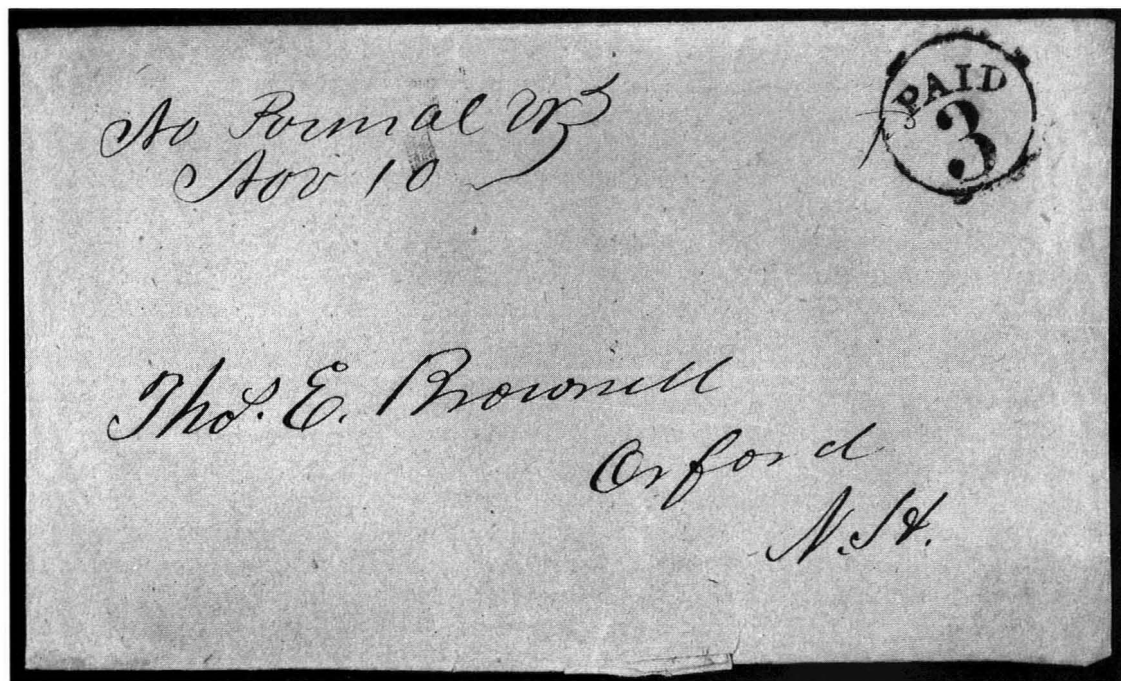 No Pomfret Vt
Nov 10
PAID
3
Thos. E. Brownell
Orford
N.H.